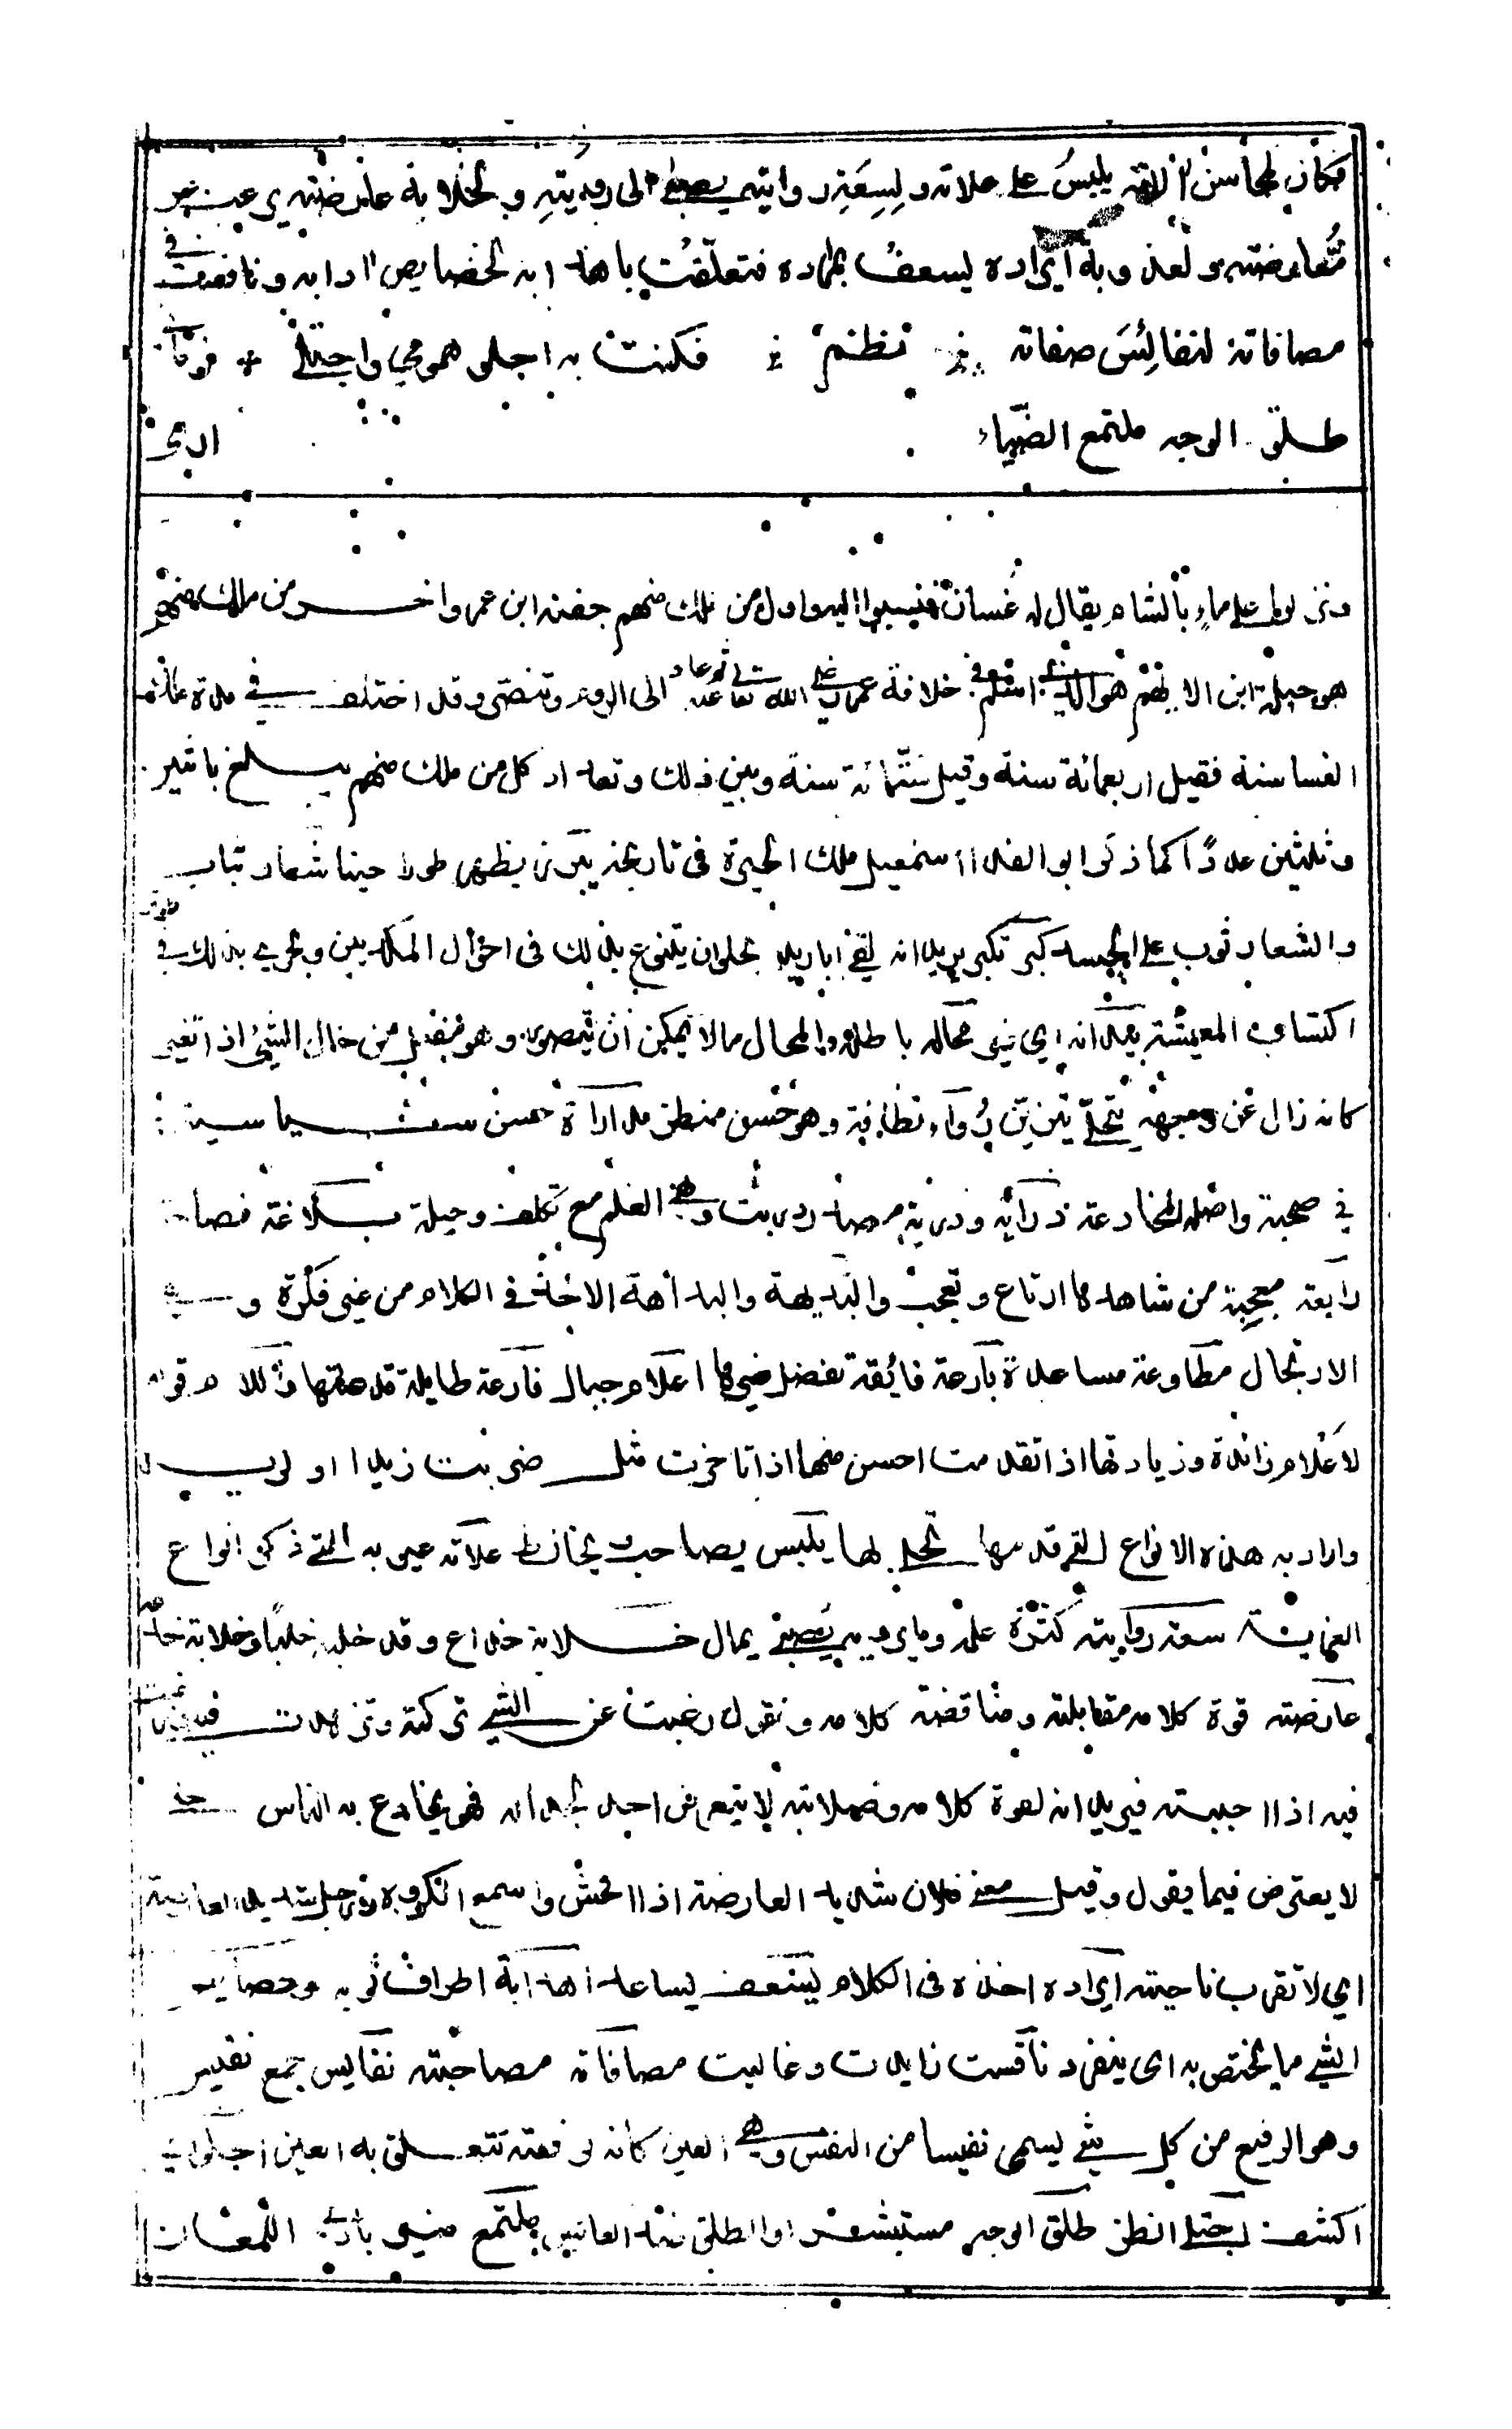 فكان لمحاسن آلاته يلبس على علاته ولسعة روايته يصبى الى رويته ولخلابة عارضته يرغب عن
معارضته ولعذوبة ايراده يسعف بمراده فتعلقت باهدابه لخصايص ادابه ونافست في
مصافاته لنفائس صفاته نظم فكنت به اجلو همومي واجتلى زماني
طلق الوجه ملتمع الضياء ارى
ونزلوا على ماء بالشام يقال له غسان فنسبوا اليه واول من ملك منهم جفنه ابن عمرو واخر من ملك منهم
هو جبلة ابن الايهم هو الذي اسلم في خلافة عمر رضي الله تعالى عنه ثم عاد الى الروم وتنصر وقد اختلف في مدة ملك
الغساسنة فقيل اربعمائة سنة وقيل ستمائة سنة وبين ذلك وتعداد كل من ملك منهم يبلغ باثنين
وثلثين عددًا كما ذكر ابو الفدا اسمعيل ملك الحيرة في تاريخه يبرز يظهر طورا حينا شعار ثياب
والشعار ثوب على الجسد كبر تكبر يريد انه لقي ابا زيد بحلوان يتنوع بذلك في احوال المكديين ويجري بذلك في
اكتساب المعيشة بيد انه اي غير محاله باطله والمحال ما لا يمكن ان يتصور وهو مفعل من حال الشئ اذا تغير
كانه زال عن وجهه يتحلى يتزين رواء نظافة وهو حسن منطق مداراة حسن سياسة
في صحبة واصله المخادعة دراية ودرية مصدر دريت وهي العلم مع تكلف وحيلة بلاغة فصاحة
رايعة معجبة من شاهدها ارتاع وتعجب والبديهة والبداهة الاخذ في الكلام من غير فكرة و
الارتجال مطاوعة مساعدة بارعة فائقة تفضل غيرها اعلام جبال فارعة طايلة قد علتها واللام قوله
لاعلام زائدة وزيادتها اذا تقدمت احسن منها اذا تاخرت مثل ضربت زيدا او لزيد
واراد به هذه الانواع التي قدمها تحلى بها يلبس يصاحب ويخالط علاته عيوبه التي ذكر انواع
سعة روايته كثرة علمه وما يرويه يصبى يمال خلابة خداع وقد خلبه خلبا وخلابة خدعه
عارضته قوة كلامه مقابلته ومناقضة كلامه ونقول رغبت عن الشئ تركته وتزهدت فيه ورغبت
فيه اذا احببته فيريد انه لقوة كلامه وصلابته لا يتعرض احد لجداله فهو يخادع به الناس حتى
لا يعترض فيما يقول وقيل معنى فلان شديد العارضة اذا افحش واسمع المكروه ورجل شديد العارضة
اي لا تقرب ناحيته ايراده اخذه في الكلام يسعف يساعد اهدابه اطراف ثوبه وخصايص
الشئ ما يختص به اى ينفرد نافست زايدت وغاليت مصافاته مصاحبته نفايس جمع نفيس
وهو الرفيع من كل شئ يسمى نفيسا من النفس وهي العين كانه لرفعته تتعلق به العين اجلو اى
اكشف اجتلى انظر طلق الوجه مستبشر والطلق ضد العابس ملتمع منير بادى اللمعان